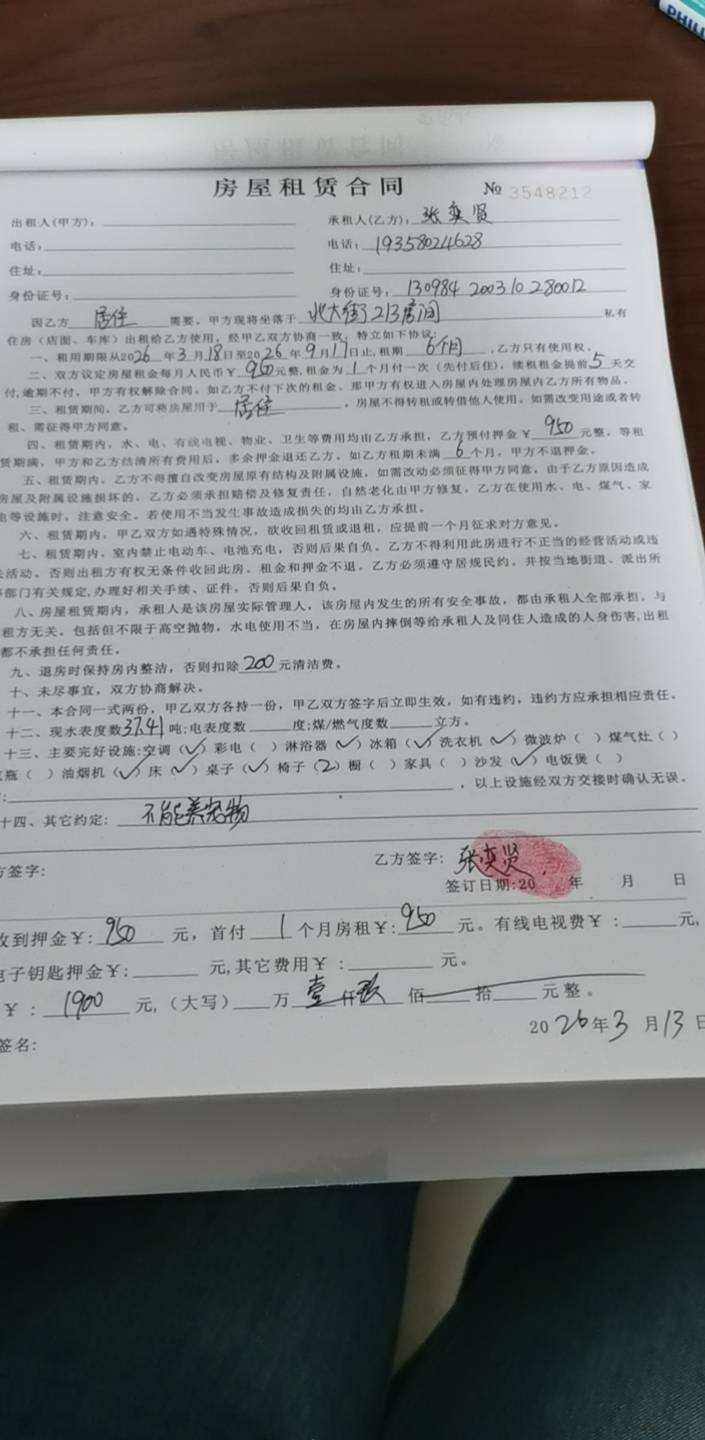 PHILI
房屋租赁合同 № 3548212
出租人(甲方): 承租人(乙方): 张奕贤
电话: 电话: 19358024628
住址: 住址:
身份证号: 身份证号: 130984 200310280012
因乙方 居住 需要，甲方现将坐落于 北大街213房间 私有
住房（店面、车库）出租给乙方使用，经甲乙双方协商一致，特立如下协议:
一、租用期限从2026年3月18日至2026年9月17日止,租期 6个月 ,乙方只有使用权。
二、双方议定房屋租金每月人民币￥950元整,租金为1个月付一次（先付后住），续租租金提前5天交
付,逾期不付，甲方有权解除合同。如乙方不付下次的租金、那甲方有权进入房屋内处理房屋内乙方所有物品。
三、租赁期间，乙方可将房屋用于 居住 。房屋不得转租或转借他人使用。如需改变用途或者转
租、需征得甲方同意。
四、租赁期内，水、电、有线电视、物业、卫生等费用均由乙方承担，乙方预付押金￥950元整，等租
赁期满，甲方和乙方结清所有费用后，多余押金退还乙方。如乙方租期未满6个月，甲方不退押金。
五、租赁期内，乙方不得擅自改变房屋原有结构及附属设施，如需改动必须征得甲方同意，由于乙方原因造成
房屋及附属设施损坏的，乙方必须承担赔偿及修复责任，自然老化由甲方修复。乙方在使用水、电、煤气、家
电等设施时，注意安全。若使用不当发生事故造成损失的均由乙方承担。
六、租赁期内，甲乙双方如遇特殊情况，欲收回租赁或退租，应提前一个月征求对方意见。
七、租赁期内，室内禁止电动车、电池充电，否则后果自负。乙方不得利用此房进行不正当的经营活动或违
法活动。否则出租方有权无条件收回此房。租金和押金不退。乙方必须遵守居规民约。并按当地街道、派出所
等部门有关规定,办理好相关手续、证件，否则后果自负。
八、房屋租赁期内，承租人是该房屋实际管理人，该房屋内发生的所有安全事故，都由承租人全部承担，与
租方无关。包括但不限于高空抛物，水电使用不当，在房屋内摔倒等给承租人及同住人造成的人身伤害,出租
都不承担任何责任。
九、退房时保持房内整洁，否则扣除200元清洁费。
十、未尽事宜，双方协商解决。
十一、本合同一式两份，甲乙双方各持一份，甲乙双方签字后立即生效，如有违约，违约方应承担相应责任。
十二、现水表度数3741吨;电表度数 度;煤/燃气度数 立方。
十三、主要完好设施:空调（√）彩电（ ）淋浴器（√）冰箱（√）洗衣机（√）微波炉（ ）煤气灶（ ）
瓶（ ）油烟机（√）床（√）桌子（√）椅子（2）橱（ ）家具（ ）沙发（√）电饭煲（ ）
: ，以上设施经双方交接时确认无误。
十四、其它约定: 不能养宠物
方签字: 乙方签字: 张奕贤
签订日期:20 年 月 日
收到押金￥: 950 元，首付 1 个月房租￥: 950 元。有线电视费￥: 元,
电子钥匙押金￥: 元,其它费用￥: 元。
￥: 1900 元,（大写） 万 壹仟玖 佰 拾 元整。
签名: 2026年3月13日